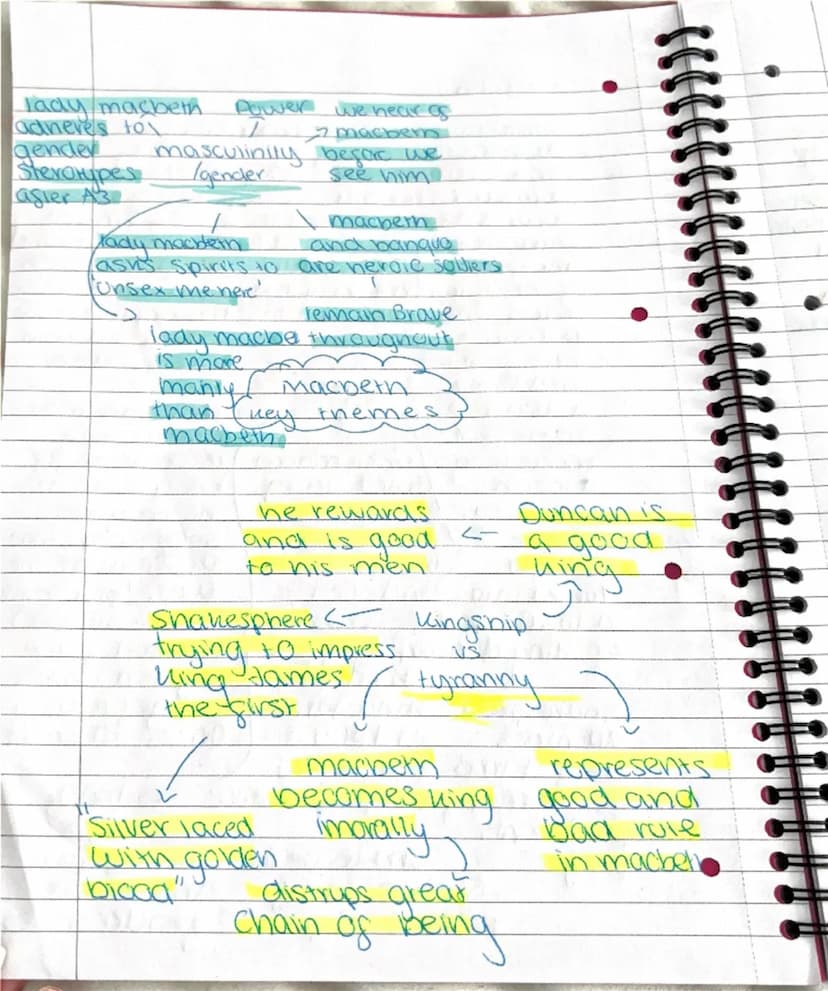 lady macbeth
adheres to
gender
sterotypes
after A3
Power
we hear of
macbeth
before we
see him
masculinity
/gender
lady macbeth
asks spirits to
'unsex me here'
macbeth
and banquo
are heroic soldiers
remain Brave
throughout
lady macbe
is more
manly
than
macbeth
Macbeth
key themes
he rewards
and is good
to his men
Duncan is
a good
king
Shakesphere
trying to impress
king James
the first
kingship
vs
tyranny
"Silver laced
with golden
blood"
macbeth
becomes king
imorally
distrups great
Chain of being
represents
good and
bad rule
in macbeth